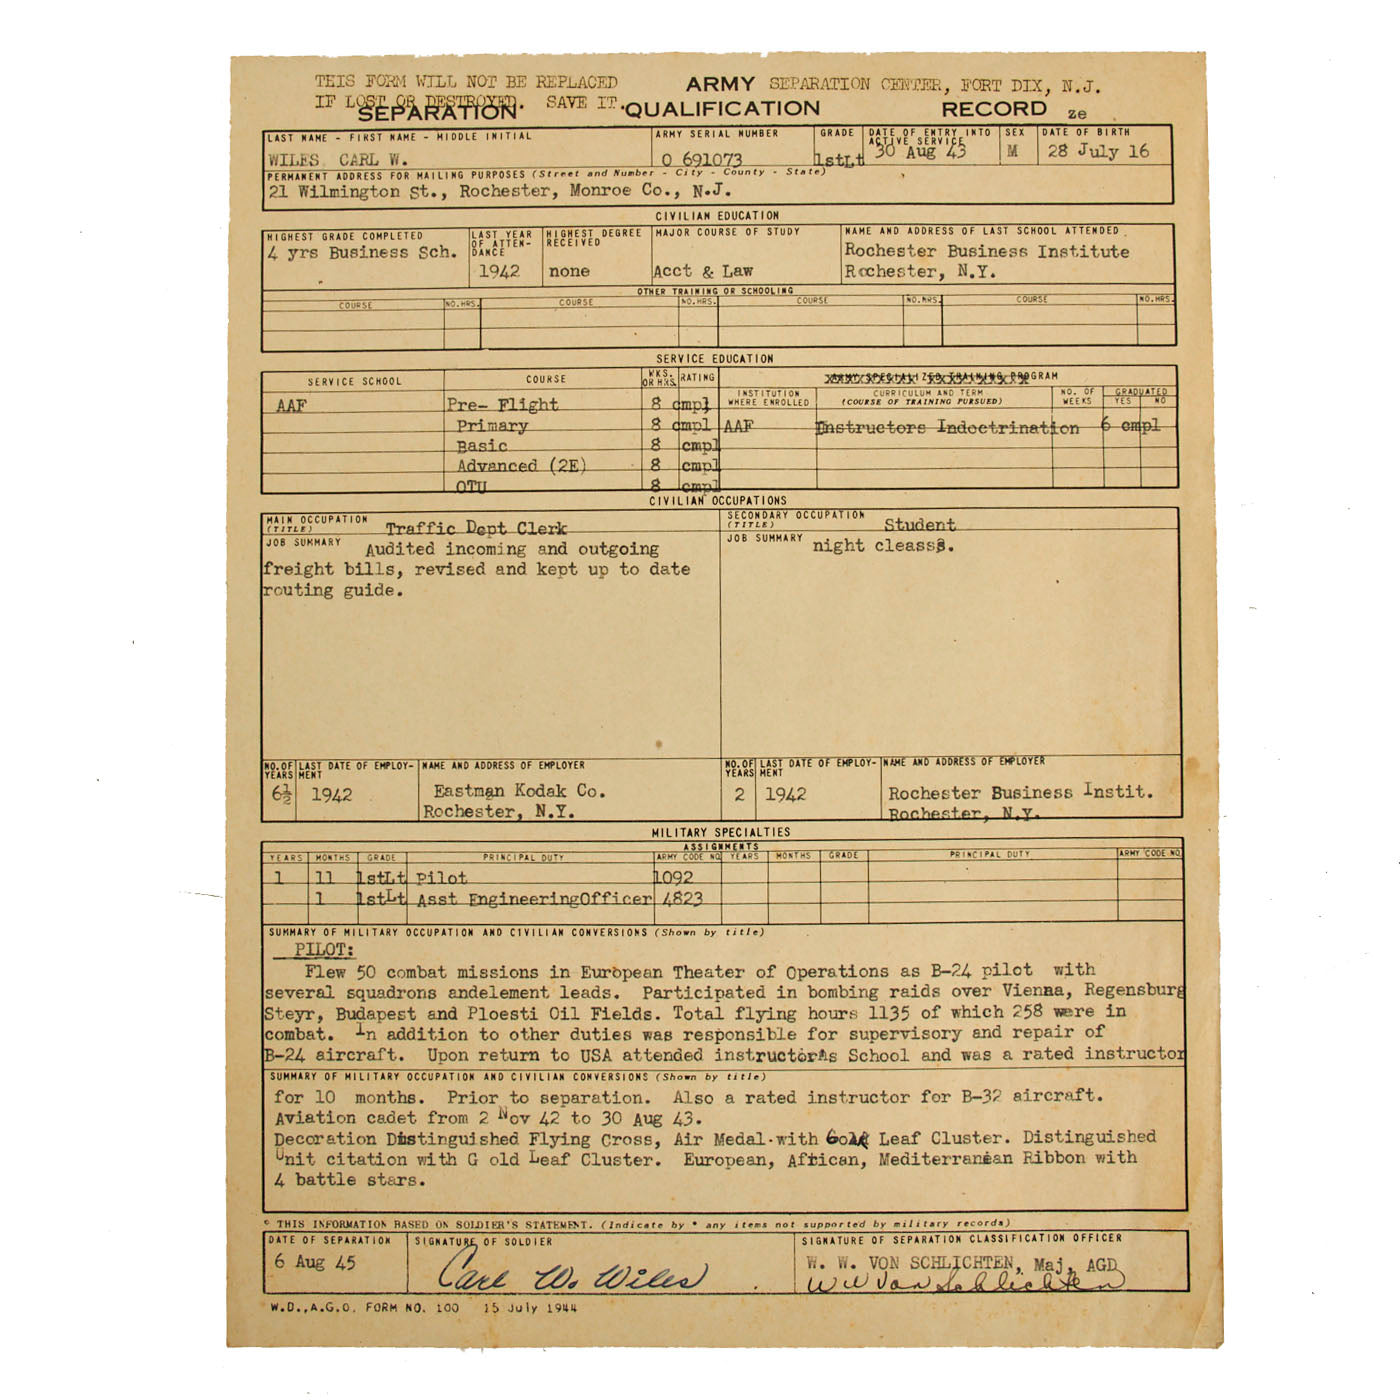 THIS FORM WILL NOT BE REPLACED
IF LOST OR DESTROYED. SAVE IT.
ARMY SEPARATION CENTER, FORT DIX, N.J.
SEPARATION QUALIFICATION RECORD ze
LAST NAME - FIRST NAME - MIDDLE INITIAL
WILES CARL W.
ARMY SERIAL NUMBER
O 691073
GRADE
1stLt
DATE OF ENTRY INTO ACTIVE SERVICE
30 Aug 43
SEX
M
DATE OF BIRTH
28 July 16
PERMANENT ADDRESS FOR MAILING PURPOSES (Street and Number - City - County - State)
21 Wilmington St., Rochester, Monroe Co., N.J.
CIVILIAN EDUCATION
HIGHEST GRADE COMPLETED
4 yrs Business Sch.
LAST YEAR OF ATTEN-DANCE
1942
HIGHEST DEGREE RECEIVED
none
MAJOR COURSE OF STUDY
Acct & Law
NAME AND ADDRESS OF LAST SCHOOL ATTENDED
Rochester Business Institute
Rochester, N.Y.
OTHER TRAINING OR SCHOOLING
COURSE NO.HRS. COURSE NO.HRS. COURSE NO.HRS. COURSE NO.HRS.
SERVICE EDUCATION
SERVICE SCHOOL COURSE WKS. OR HRS. RATING
ARMY SPECIALIZED TRAINING PROGRAM
INSTITUTION WHERE ENROLLED
CURRICULUM AND TERM (COURSE OF TRAINING PURSUED)
NO. OF WEEKS
GRADUATED YES NO
AAF Pre- Flight 8 cmpl
Primary 8 cmpl AAF Instructors Indoctrination 6 cmpl
Basic 8 cmpl
Advanced (2E) 8 cmpl
OTU 8 cmpl
CIVILIAN OCCUPATIONS
MAIN OCCUPATION (TITLE) Traffic Dept Clerk
JOB SUMMARY Audited incoming and outgoing
freight bills, revised and kept up to date
routing guide.
SECONDARY OCCUPATION (TITLE) Student
JOB SUMMARY night cleasss.
NO.OF YEARS
6½
LAST DATE OF EMPLOY-MENT
1942
NAME AND ADDRESS OF EMPLOYER
Eastman Kodak Co.
Rochester, N.Y.
NO.OF YEARS
2
LAST DATE OF EMPLOY-MENT
1942
NAME AND ADDRESS OF EMPLOYER
Rochester Business Instit.
Rochester, N.Y.
MILITARY SPECIALTIES
ASSIGNMENTS
YEARS MONTHS GRADE PRINCIPAL DUTY ARMY CODE NO. YEARS MONTHS GRADE PRINCIPAL DUTY ARMY CODE NO.
1 11 1stLt pilot 1092
1 1stLt Asst EngineeringOfficer 4823
SUMMARY OF MILITARY OCCUPATION AND CIVILIAN CONVERSIONS (Shown by title)
PILOT:
Flew 50 combat missions in European Theater of Operations as B-24 pilot with
several squadrons andelement leads. Participated in bombing raids over Vienna, Regensburg
Steyr, Budapest and Ploesti Oil Fields. Total flying hours 1135 of which 258 were in
combat. In addition to other duties was responsible for supervisory and repair of
B-24 aircraft. Upon return to USA attended instructors School and was a rated instructor
SUMMARY OF MILITARY OCCUPATION AND CIVILIAN CONVERSIONS (Shown by title)
for 10 months. Prior to separation. Also a rated instructor for B-32 aircraft.
Aviation cadet from 2 Nov 42 to 30 Aug 43.
Decoration Distinguished Flying Cross, Air Medal with Gold Leaf Cluster. Distinguished
Unit citation with G old Leaf Cluster. European, African, Mediterranean Ribbon with
4 battle stars.
* THIS INFORMATION BASED ON SOLDIER'S STATEMENT. (Indicate by * any items not supported by military records)
DATE OF SEPARATION
6 Aug 45
SIGNATURE OF SOLDIER
Carl W. Wiles
SIGNATURE OF SEPARATION CLASSIFICATION OFFICER
W. W. VON SCHLICHTEN, Maj, AGD
W W Von Schlichten
W.D.,A.G.O. FORM NO. 100 15 July 1944